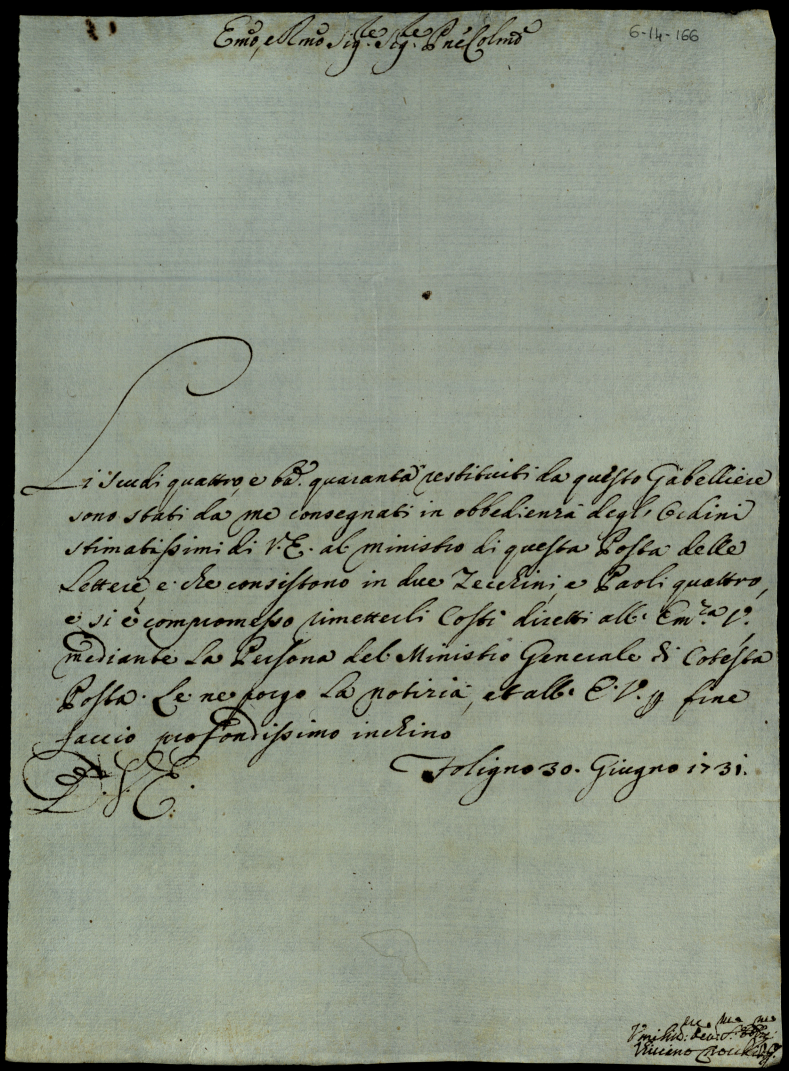 Emo, e Rmo Sig.re Sig.re Pne Colmo
6-14-166
Li scudi quattro, e bà. quaranta restituiti da questo Gabelliere
sono stati da me consegnati in obbedienza degl' Ordini
stimatissimi di V.E. al ministro di questa Posta delle
Lettere, e che consistono in due Zecchini, e Paoli quattro,
e si è compromesso rimetterli Costì diretti all' Em.za V.
mediante La Persona del Ministro Generale di Cotesta
Posta. Le ne porgo La notizia, et all' E. V. p fine
faccio profondissimo inchino
Foligno 30. Giugno 1731.
D. V. E.
Vmiliss. devot. obb.